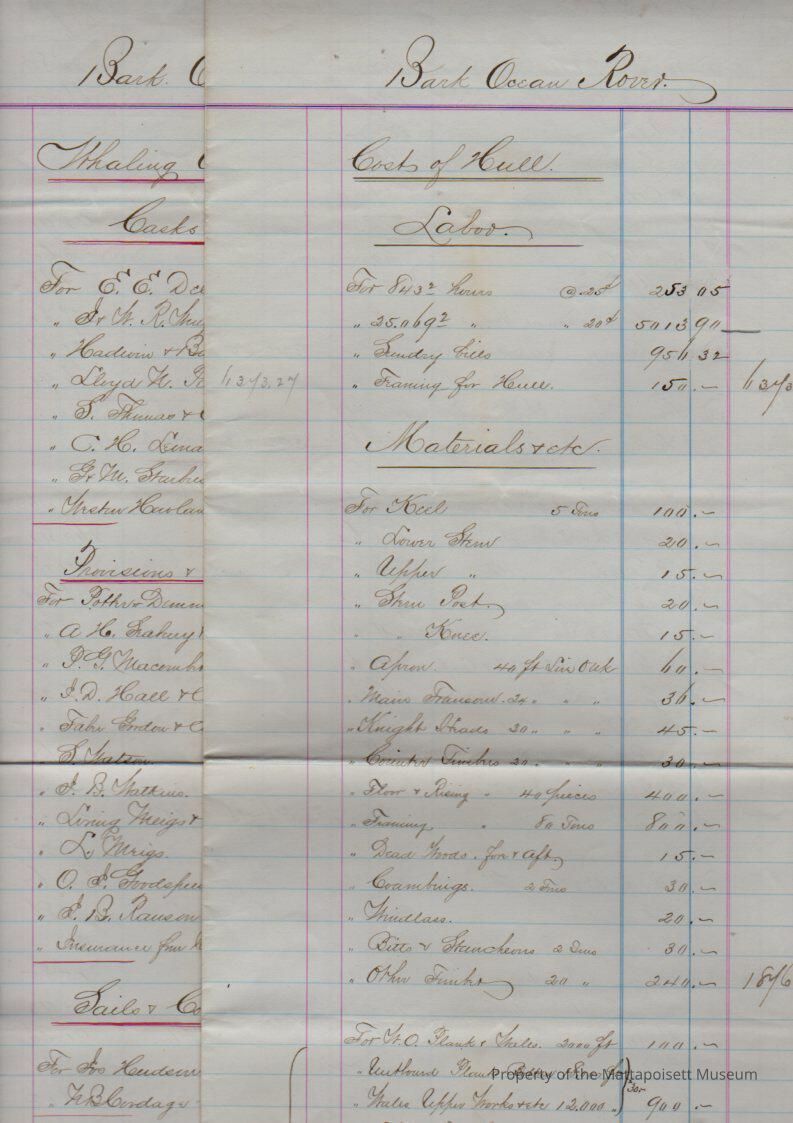 Bark. O
Whaling
Casks
For E. E. D
" I & W. R.
" Hadwin & B
" Lloyd N.
" S. Thomas &
" C. H.
" G & M. Starbu
" Weston Howlan
Provisions &
For
" A H. Seabury
" P. G. Macomb
" J. D. Hall & C
" Gordon & C
" S. Watson.
" J. B. Watkins.
" Loring Meigs &
" L. Meigs.
" O. J. Goodspee
" J. B. Ranson
" Insurance
Sails & Co
For Jos Hudson
Cordage
Bark Ocean Rover.
Cost of Hull.
Labor.
For 843² hours @ 25¢ 253 05
" 25.069² " " 20¢ 5013 90
" Sundry bills 956 32
6373.27
" Framing for Hull. 150.- 6373
Materials & etc.
For Keel 5 Tons 100.-
" Lower Stem 20.-
" Upper " 15.-
" Stern Post 20.-
" " Knee. 15.-
" Apron. 40 ft Live Oak 60.-
" Main Transom. 24 " " " 36.-
" Knight Heads 30 " " " 45.-
" Counter Timbers 20 " " " 30.-
" Floor & Rising " 40 pieces 400.-
" Framing " 80 Tons 800.-
" Dead Woods. for & aft 15.-
" Coambings. 2 Tons 30.-
" Windlass. 20.-
" Bitts & Stancheons 2 Tons 30.-
" Other Timber 20 " 240.- 1876
For W. O. Plank & Wales. 2000 ft 100.-
" Plank
" Wales Upper Works & etc 12.000 " 30 900.-
Property of the Mattapoisett Museum